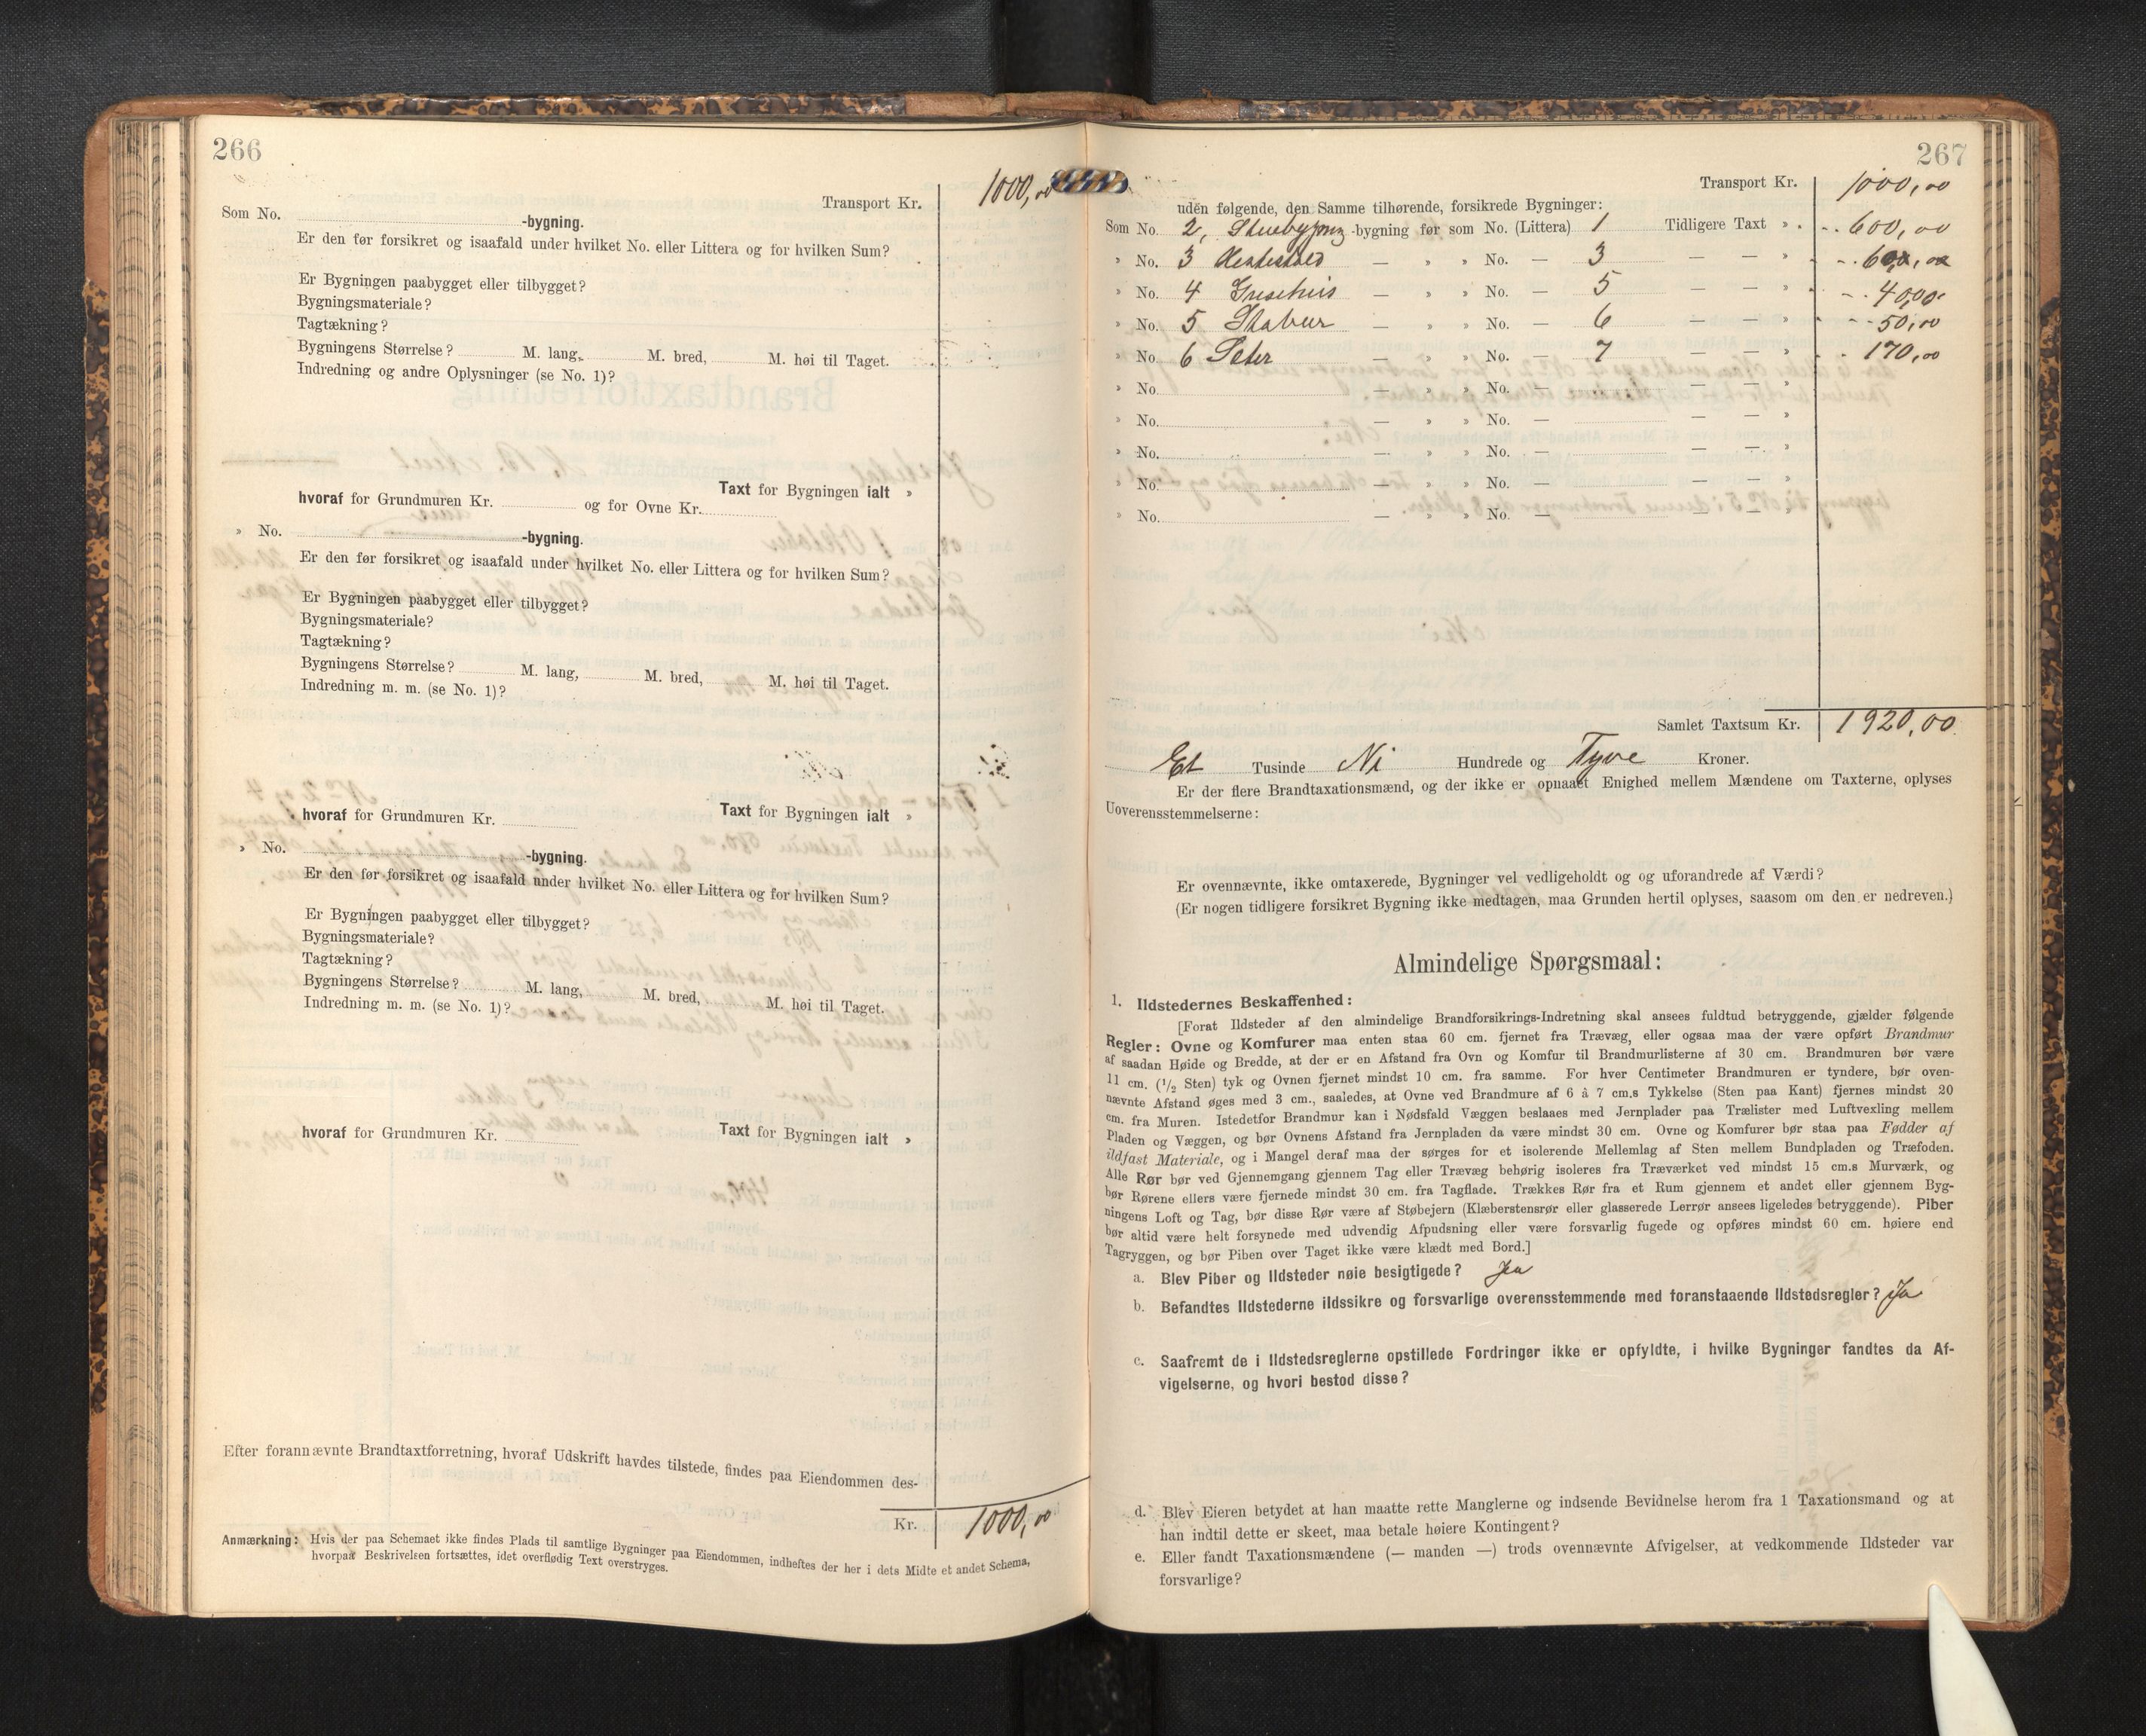 266
Transport Kr. 1000,00
Som No. -bygning.
Er den før forsikret og isaafald under hvilket No. eller Littera og for hvilken Sum?
Er Bygningen paabygget eller tilbygget?
Bygningsmateriale?
Tagtækning?
Bygningens Størrelse? M. lang, M. bred, M. høi til Taget.
Indredning og andre Oplysninger (se No. 1)?
Taxt for Bygningen ialt »
hvoraf for Grundmuren Kr. og for Ovne Kr.
» No. -bygning.
Er den før forsikret og isaafald under hvilket No. eller Littera og for hvilken Sum?
Er Bygningen paabygget eller tilbygget?
Bygningsmateriale?
Tagtækning?
Bygningens Størrelse? M. lang, M. bred, M. høi til Taget.
Indredning m. m. (se No. 1)?
hvoraf for Grundmuren Kr. Taxt for Bygningen ialt »
» No. -bygning.
Er den før forsikret og isaafald under hvilket No. eller Littera og for hvilken Sum?
Er Bygningen paabygget eller tilbygget?
Bygningsmateriale?
Tagtækning?
Bygningens Størrelse? M. lang, M. bred, M. høi til Taget.
Indredning m. m. (se No. 1)?
hvoraf for Grundmuren Kr. Taxt for Bygningen ialt »
Efter forannævnte Brandtaxtforretning, hvoraf Udskrift havdes tilstede, findes paa Eiendommen des-
Kr. 1000,00
Anmærkning: Hvis der paa Schemaet ikke findes Plads til samtlige Bygninger paa Eiendommen, indheftes der her i dets Midte et andet Schema,
hvorpaa Beskrivelsen fortsættes, idet overflødig Text overstryges.
267
Transport Kr. 1000,00
uden følgende, den Samme tilhørende, forsikrede Bygninger:
Som No. 2, Stuebygng -bygning før som No. (Littera) 1 Tidligere Taxt » 600,00
» No. 3 Hestestald — » » No. — 3 — — » 60,00
» No. 4 Grisehus — » » No. — 5 — — » 40,00
» No. 5 Stabur — » » No. — 6 — — » 50,00
» No. 6 Seter — » » No. — 7 — — » 170,00
» No. — » » No. — — — »
» No. — » » No. — — — »
» No. — » » No. — — — »
» No. — » » No. — — — »
» No. — » » No. — — — »
Samlet Taxtsum Kr. 1920,00
Et Tusinde Ni Hundrede og Tyve Kroner.
Er der flere Brandtaxationsmænd, og der ikke er opnaaet Enighed mellem Mændene om Taxterne, oplyses
Uoverensstemmelserne:
Er ovennævnte, ikke omtaxerede, Bygninger vel vedligeholdt og og uforandrede af Værdi?
(Er nogen tidligere forsikret Bygning ikke medtagen, maa Grunden hertil oplyses, saasom om den er nedreven.)
Almindelige Spørgsmaal:
1. Ildstedernes Beskaffenhed:
[Forat Ildsteder af den almindelige Brandforsikrings-Indretning skal ansees fuldtud betryggende, gjælder følgende
Regler: Ovne og Komfurer maa enten staa 60 cm. fjernet fra Trævæg, eller ogsaa maa der være opført Brandmur
af saadan Høide og Bredde, at der er en Afstand fra Ovn og Komfur til Brandmurlisterne af 30 cm. Brandmuren bør være
11 cm. (1/2 Sten) tyk og Ovnen fjernet mindst 10 cm. fra samme. For hver Centimeter Brandmuren er tyndere, bør oven-
nævnte Afstand øges med 3 cm., saaledes, at Ovne ved Brandmure af 6 à 7 cm.s Tykkelse (Sten paa Kant) fjernes mindst 20
cm. fra Muren. Istedetfor Brandmur kan i Nødsfald Væggen beslaaes med Jernplader paa Trælister med Luftvexling mellem
Pladen og Væggen, og bør Ovnens Afstand fra Jernpladen da være mindst 30 cm. Ovne og Komfurer bør staa paa Fødder af
ildfast Materiale, og i Mangel deraf maa der sørges for et isolerende Mellemlag af Sten mellem Bundpladen og Træfoden.
Alle Rør bør ved Gjennemgang gjennem Tag eller Trævæg behørig isoleres fra Træværket ved mindst 15 cm.s Murværk, og
bør Rørene ellers være fjernede mindst 30 cm. fra Tagflade. Trækkes Rør fra et Rum gjennem et andet eller gjennem Byg-
ningens Loft og Tag, bør disse Rør være af Støbejern (Klæberstensrør eller glasserede Lerrør ansees ligeledes betryggende). Piber
bør altid være helt forsynede med udvendig Afpudsning eller være forsvarlig fugede og opføres mindst 60 cm. høiere end
Tagryggen, og bør Piben over Taget ikke være klædt med Bord.]
a. Blev Piber og Ildsteder nøie besigtigede? Ja
b. Befandtes Ildstederne ildssikre og forsvarlige overensstemmende med foranstaaende Ildstedsregler? Ja
c. Saafremt de i Ildstedsreglerne opstillede Fordringer ikke er opfyldte, i hvilke Bygninger fandtes da Af-
vigelserne, og hvori bestod disse?
d. Blev Eieren betydet at han maatte rette Manglerne og indsende Bevidnelse herom fra 1 Taxationsmand og at
han indtil dette er skeet, maa betale høiere Kontingent?
e. Eller fandt Taxationsmændene (— manden —) trods ovennævnte Afvigelser, at vedkommende Ildsteder var
forsvarlige?